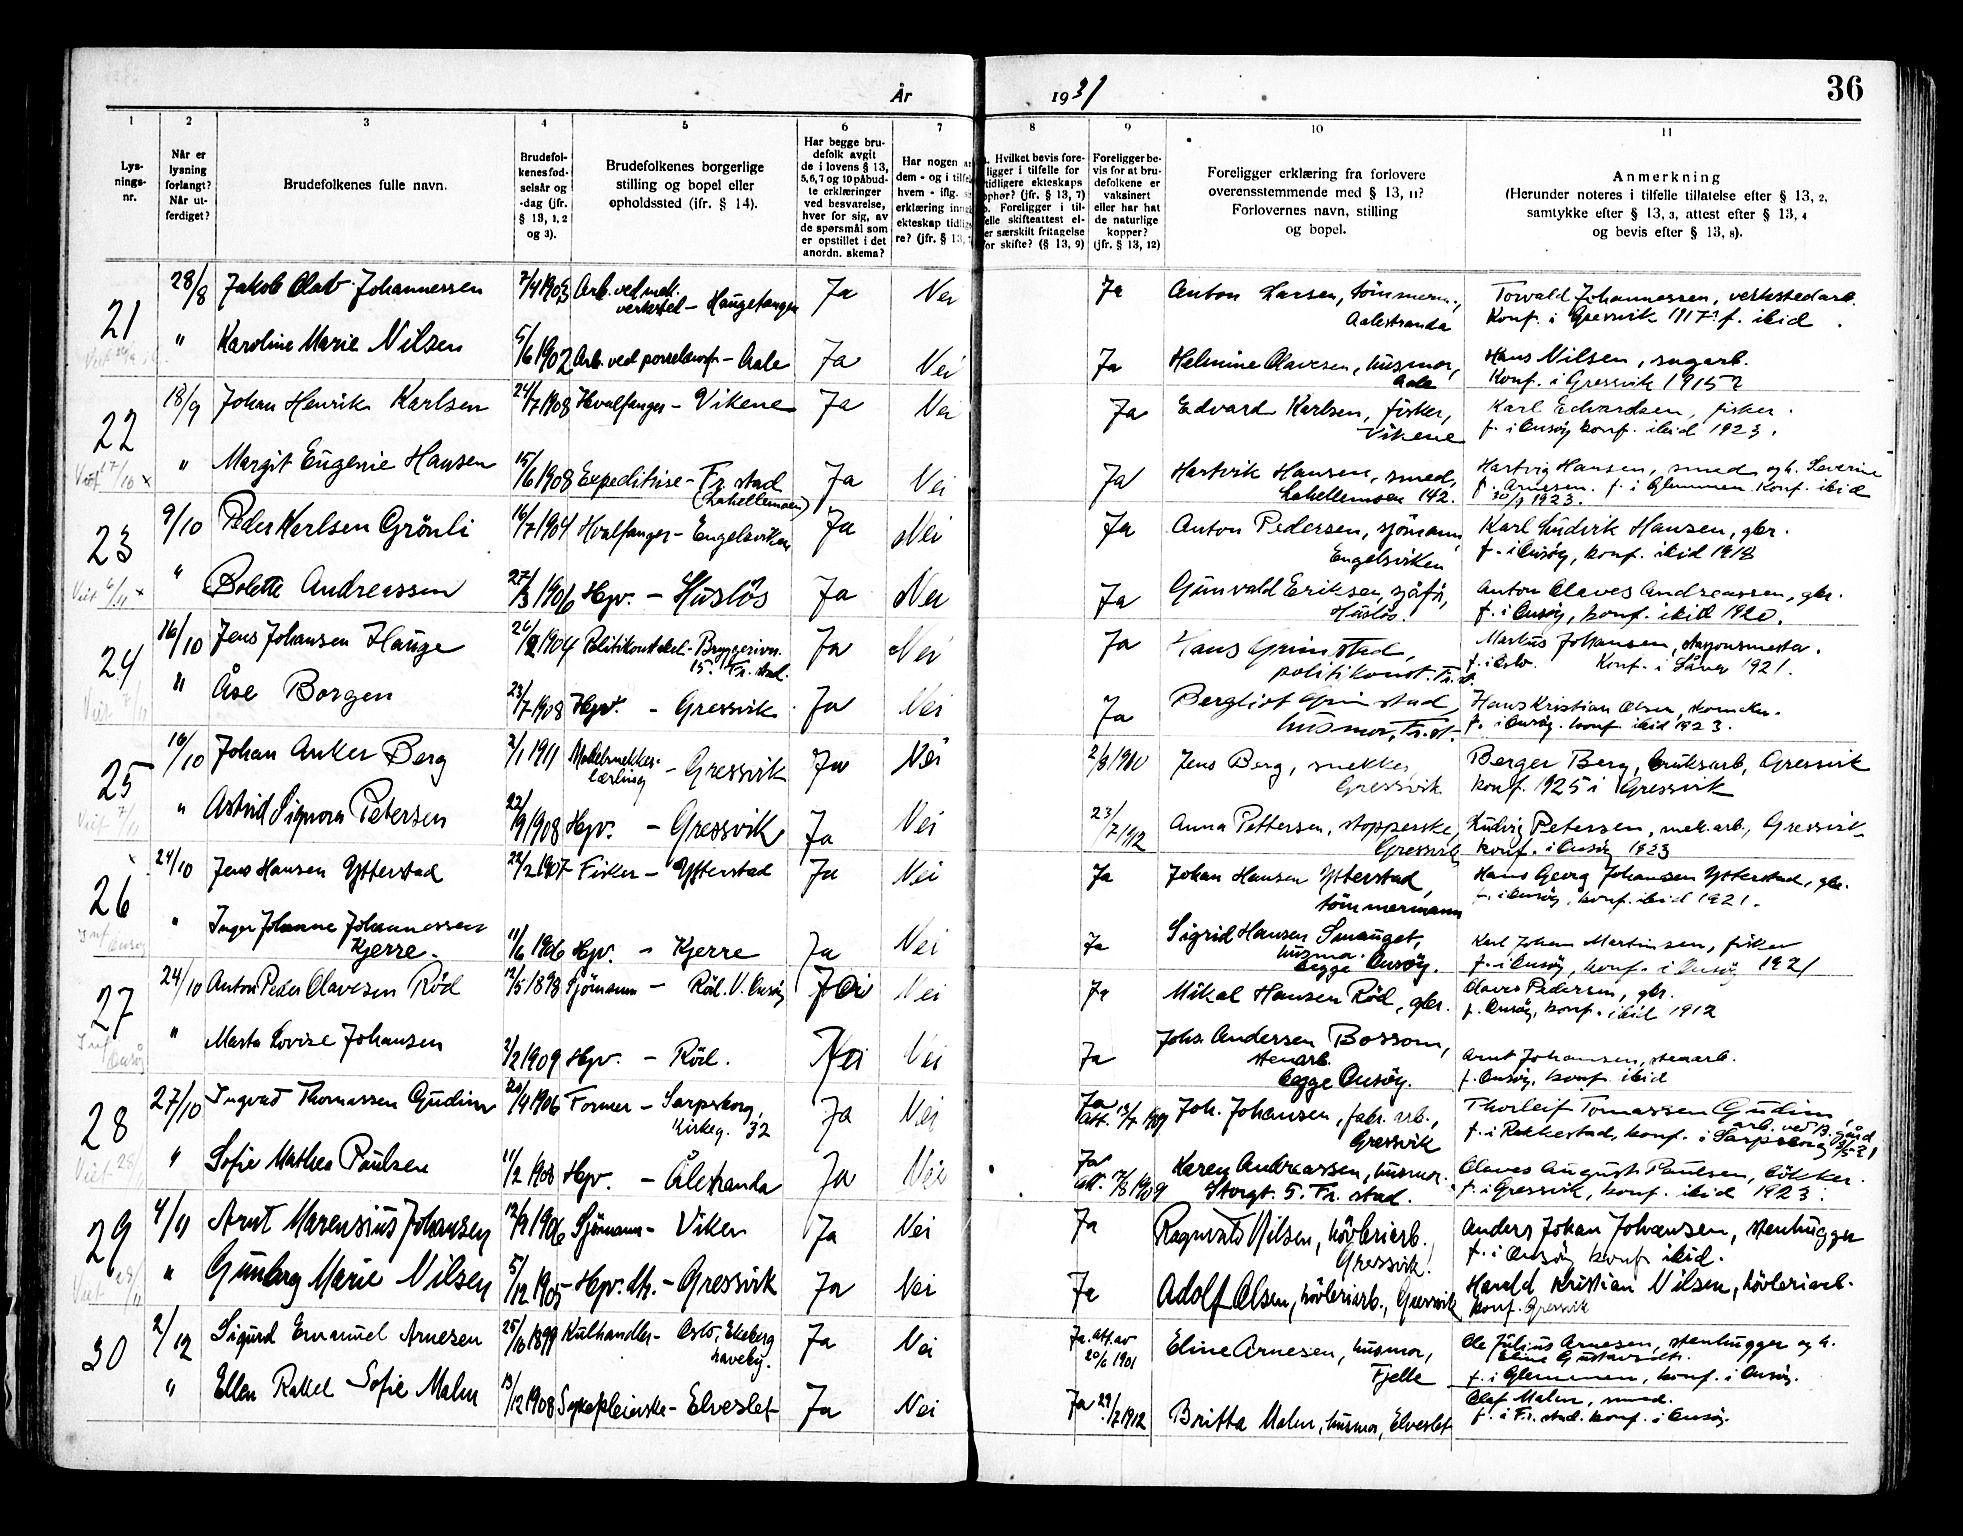 36
År 1931
1 2 3 4 5 6 7 8 9 10 11
Lysningsnr.
Når er lysning forlangt? Når utferdiget?
Brudefolkenes fulle navn.
Brudefolkenes fødselsår og -dag (jfr. § 13, 1, 2 og 3).
Brudefolkenes borgerlige stilling og bopel eller opholdssted (jfr. § 14).
Har begge brudefolk avgit de i lovens § 13, 5,6,7 og 10 påbudte erklæringer ved besvarelse, hver for sig, av de spørsmål som er opstillet i det anordn. skema?
Har nogen av dem - og i tilfe hvem - iflg. erklæring inng ekteskap tidlig re? (jfr. § 13,
Hvilket bevis foreligger i tilfelle for tidligere ekteskaps ophør? (jfr. § 13, 7) Foreligger i tilfelle skifteattest eller særskilt fritagelse for skifte? (§ 13, 9)
Foreligger bevis for at brudefolkene er vaksinert eller har hat de naturlige kopper? (jfr. § 13, 12)
Foreligger erklæring fra forlovere overensstemmende med § 13, 11? Forlovernes navn, stilling og bopel.
Anmerkning (Herunder noteres i tilfelle tillatelse efter § 13, 2, samtykke efter § 13, 3, attest efter § 13, 4 og bevis efter § 13, 8).
21 28/8 Jakob Olav Johannessen 7/4 1903 Arb. ved mek. verksted - Haugetangen Ja Nei Ja Anton Larsen, tömmerm., Aalestranda Torvald Johannessen, verkstedarb. Konf. i Gressvik 1917. f. ibid.
" Karoline Marie Nilsen 5/6 1902 Arb. ved porselensf. - Aale Ja Nei Ja Helmine Olavesen, husmor, Aale Hans Nilsen, sagarb. Konf. i Gressvik 1915?
22 18/9 Johan Henrik Karlsen 24/7 1908 Hvalfanger - Vikene Ja Nei Ja Edvard Karlsen, fisker, Vikene Karl Edvardsen, fisker. f. i Onsöy konf. ibid 1923.
Viet 17/10 x " Margit Eugenie Hansen 15/6 1908 Expeditrise - Fr.stad (Lahellemoen) Ja Nei Ja Hartvik Hansen, smed, Lahellemoen 142. Hartvig Hansen, smed og h. Severine f. Arnesen. f. i Glemmen konf. ibid 30/9 1923.
23 9/10 Peder Karlsen Grönli 16/7 1904 Hvalfanger - Engelsviken Ja Nei Ja Anton Pedersen, sjömann, Engelsviken Karl Ludvik Hansen, gbr. f. i Onsöy, konf. ibid 1918
Viet 6/11 x " Bolette Andreassen 27/3 1906 Hpv. - Huslös Ja Nei Ja Gunvald Eriksen, sjåför, Huslös. Anton Olaves Andreassen, gbr. f. i Onsöy, konf. ibid 1920.
24 16/10 Jens Johansen Hauge 1904 Politikonstabel - Bryggerivn. 15. Fr.stad. Ja Nei Ja Hans Grimstad, politikonst. Fr.st. Markus Johansen, stasjonsmester. f. i Oslo. Konf. i Såner 1921.
" Åse Borgen 23/7 1908 Hpv. - Gressvik Ja Nei Ja Bergliot Grimstad, husmor, Fr.st. Hans Kristian Olsen, skomaker. f. i Onsöy. konf ibid 1923.
25 16/10 Johan Anker Berg 2/1 1911 Modelsnekkerlærling - Gressvik Ja Nei Jens Berg, snekker, Gressvik Berger Berg, bruksarb, Gressvik konf. 1925 i Gressvik
Viet 7/11 " Astrid Signora Petersen 22/9 1908 Hpv. - Gressvik Ja Nei 23/7 1912 Anna Pettersen, stopperske, Gressvik Ludvig Petersen, mek.arb., Gressvik konf. i Onsöy 1923
26 24/10 Jens Hansen Ytterstad 22/2 1907 Fisker - Ytterstad Ja Nei Ja Johan Hansen Ytterstad, tömmermann Hans Georg Johansen Ytterstad, gbr. f. i Onsöy, konf. ibid 1921.
" Inger Johanne Johannessen Kjerre. 11/6 1906 Hpv. - Kjerre Ja Nei Ja Sigrid Hansen Smauget, husmor. begge Onsöy. Karl Johan Martinsen, fisker f. i Onsöy, konf. i Onsöy 1921
27 24/10 Anton Peder Olavesen Röd 12/5 1898 Sjömann - Röd. V. Onsöy Ja Nei Ja Mikal Hansen Röd, gbr. Olaves Pedersen, gbr. f. Onsöy, konf. ibid 1912
" Marta Lovise Johansen 2/2 1909 Hpv. - Röd. Nei Ja Johs. Andersen Bossom, stenarb. begge Onsöy. Arnt Johansen, stenarb. f. Onsöy, konf. ibid
28 27/10 Ingvad Thomassen Gudim 20/4 1906 Former - Sarpsborg, Kirkeg. 32 Ja Nei Ja Joh. Johansen, fabr. arb., Gressvik Thorleif Tomassen Gudim, arb. ved B.gård f. i Rakkestad, konf. i Sarpsborg
" Sofie Mathea Paulsen 11/2 1908 Hpv. - Ålestranda Ja Nei Ja att. 1909 Karen Andreassen, husmor. Storgt. 5. Fr.stad. Olaves August Paulsen, bökker. f. i Gressvik, konf. ibid 1923.
29 4/11 Arnt Marensius Johansen 12/9 1906 Sjömann - Viker Ja Nei Ja Ragnvald Nilsen, hövleriarb. Gressvik. Anders Johan Johansen, stenhugger f. i Onsöy konf ibid.
" Gunborg Marie Nilsen 5/12 1905 Hpv. - Gressvik Ja Nei Ja Adolf Olsen, hövleriarb., Gressvik Harald Kristian Nilsen, hövleriarb. konf. Gressvik
30 2/12 Sigurd Emanuel Arnesen 1899 Kulhandler - Oslo, Ekeberg haveby. Ja Nei Ja. att. av 20/6 1901 Eline Arnesen, husmor, Fjelle Ole Julius Arnesen, stenhugger og h. Eline f. i Glemmen, konf. i Onsöy.
" Ellen Rakel Sofie Malm 13/12 1908 Sykepleierske - Elveslet Ja Nei Ja 29/2 1912 Britta Malm, husmor, Elveslet Olaf Malm, smed. f. i Fr.stad. konf. i Onsöy.